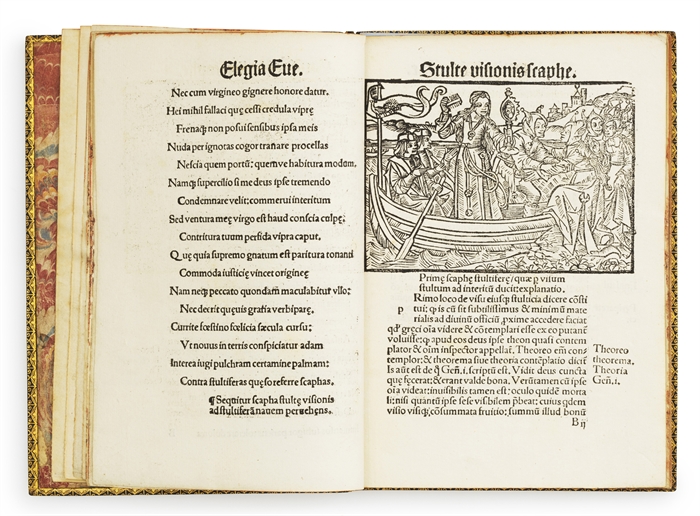 Elegia Eue.
Nec cum virgineo gignere honore datur.
Hei mihi! fallaci quę cessi credula viprę
Frenaq; non posui sensibus ipsa meis
Nuda per ignotas cogor tranare procellas
Nescia quem portū: quemve habitura modum.
Namq; supercilio si me deus ipse tremendo
Condemnare velit: commerui interitum
Sed ventura meę virgo est haud conscia culpę.
Contritura tuum perfida vipra caput.
Quę quia supremo gnatum est paritura tonanti
Commoda iusticię vincet origineę
Nam neq; peccato quondam maculabitur vllo:
Nec decrit queuis gratia verbiparę.
Currite fœstino fœlicia sæcula cursu:
Vt nouus in terris conspiciatur adam
Interea iugi pulchram certamine palmam:
Contra stultiferas quęso referre scaphas.
¶ Sequitur scapha stultę visionis
ad stultiferā nauem peruehens.
Stulte visionis scaphe.
Primę scaphę stultiferę/ quæ p visum
stultum ad interitū ducit: explanatio.
p Rimo loco de visu eiusq; stulticia dicere cōsti
tui: q̄ is cū sit subtilissimus & minimū mate
rialis ad diuinū officiū, pxime accedere faciat
qđ greci oīa videre & cōtemplari esse ex eo putant
voluisse: q̄ apud eos deus ipse theon quasi contem
plator & oīm inspector appellat̄. Theoreo em̄ cons
templor: & theorema siue theoria contēplatio dicit̄
Is aūt est de q̄ Geñ.i. scriptū est. Vidit deus cuncta
quę fecerat: & erant valde bona. Verūtamen cū ipse
oīa videat: inuisibilis tamen est: oculo quidē morta
li: nisi quantū ipse sese visibilem pbeat: cuius qdem
visio visiq; cōsummata fruitio: summū illud bonū
Theoreo
theorema.
Theoria
Geñ.i.
B ij